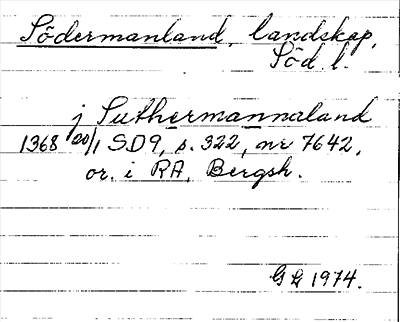 Södermanland, landskap,
Söd. l.
j Suthermannaland
1368 20/1 SD9, s. 322, nr 7642,
or. i RA, Bergsh.
G L 1974.